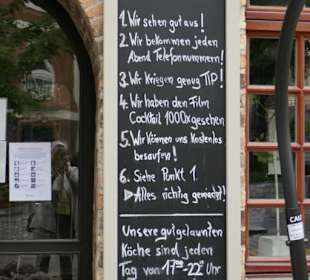 1. Wir sehen gut aus!
2. Wir bekommen jeden
Abend Telefonnummern!
3. Wir Kriegen genug TIP!
4. Wir haben den Film
Cocktail 1000x gesehen
5. Wir Können uns Kostenlos
besaufen!
6. Siehe Punkt 1.
Alles richtig gemacht!
Unsere gutgelaunten
Köche sind jeden
Tag von 17⁰⁰-22⁰⁰ Uhr